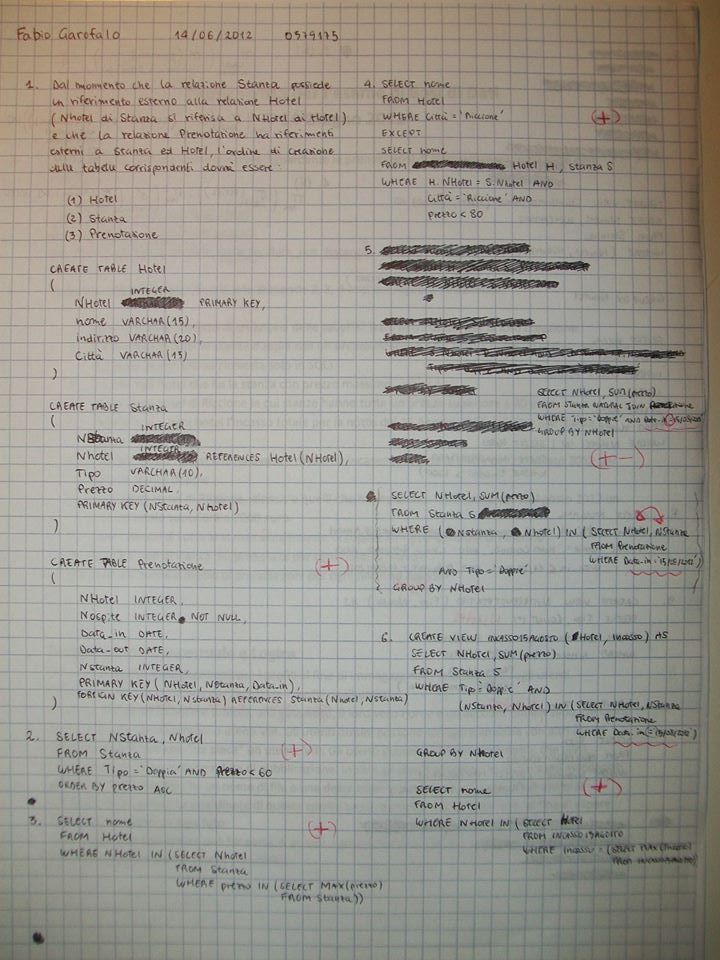 Fabio Garofalo 14/06/2012 0579175
1. Dal momento che la relazione Stanza possiede
un riferimento esterno alla relazione Hotel
(Nhotel di Stanza si riferisca a NHotel di Hotel)
e che la relazione Prenotazione ha riferimenti
esterni a Stanza ed Hotel, l'ordine di creazione
delle tabelle corrispondenti dovrà essere:
(1) Hotel
(2) Stanza
(3) Prenotazione
CREATE TABLE Hotel
(
INTEGER
NHotel PRIMARY KEY,
nome VARCHAR(15),
indirizzo VARCHAR(20),
Città VARCHAR(15)
)
CREATE TABLE Stanza
(
INTEGER
NStanza
INTEGER
Nhotel REFERENCES Hotel(NHotel),
Tipo VARCHAR(10),
Prezzo DECIMAL,
PRIMARY KEY(NStanza, Nhotel)
)
CREATE TABLE Prenotazione (+)
(
NHotel INTEGER,
Nospite INTEGER NOT NULL,
Data_in DATE,
Data-out DATE,
Nstanza INTEGER,
PRIMARY KEY( NHotel, NStanza, Data-in),
FOREIGN KEY(NHotel, Nstanza) REFERENCES Stanza(Nhotel, NStanza)
)
2. SELECT NStanza, Nhotel
FROM Stanza (+)
WHERE Tipo='Doppia' AND Prezzo<60
ORDER BY prezzo ASC
3. SELECT nome (+)
FROM Hotel
WHERE NHotel IN (SELECT Nhotel
FROM Stanza
WHERE prezzo IN (SELECT MAX(prezzo)
FROM Stanza))
4. SELECT nome
FROM Hotel
WHERE Città='Riccione' (+)
EXCEPT
SELECT nome
FROM Hotel H, Stanza S
WHERE H.NHotel = S.Nhotel AND
Città='Riccione' AND
prezzo < 80
5.
SELECT NHotel, SUM(prezzo)
FROM Stanza NATURAL JOIN Prenotazione
WHERE Tipo='Doppie' AND Data-in
GROUP BY NHotel
(+-)
SELECT NHotel, SUM(prezzo)
FROM Stanza S
WHERE (Nstanza, Nhotel) IN (SELECT NHotel, NStanza
FROM Prenotazione
WHERE Data-in='15/08/2012')
AND Tipo='Doppie'
GROUP BY NHotel
6. CREATE VIEW INCASSO15AGOSTO (Hotel, incasso) AS
SELECT NHotel, SUM(prezzo)
FROM Stanza S
WHERE Tipo='Doppie' AND
(NStanza, NHotel) IN (SELECT NHotel, NStanza
FROM Prenotazione
WHERE Data-in='15/08/2012')
GROUP BY NHotel
SELECT nome (+)
FROM Hotel
WHERE NHotel IN (SELECT
FROM INCASSO15AGOSTO
WHERE incasso = (SELECT MAX(incasso)
FROM INCASSO15AGOSTO))